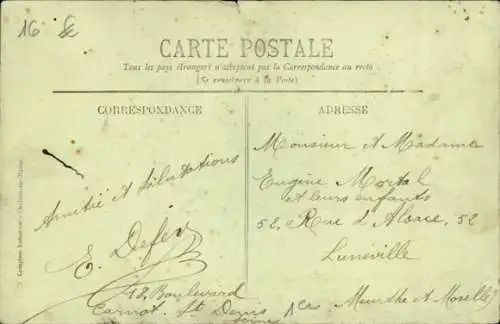 16
CARTE POSTALE
Tous les pays étrangers n'acceptent pas la Correspondance au recto
(Se renseigner à la Poste)
CORRESPONDANCE
ADRESSE
Amitié et Salutations
E. Defer
48, Boulevard
Carnot, St Denis
Seine
Monsieur et Madame
Eugène Mortal
et leurs enfants
52, Rue d'Alsace, 52
Lunéville
Meurthe et Moselle